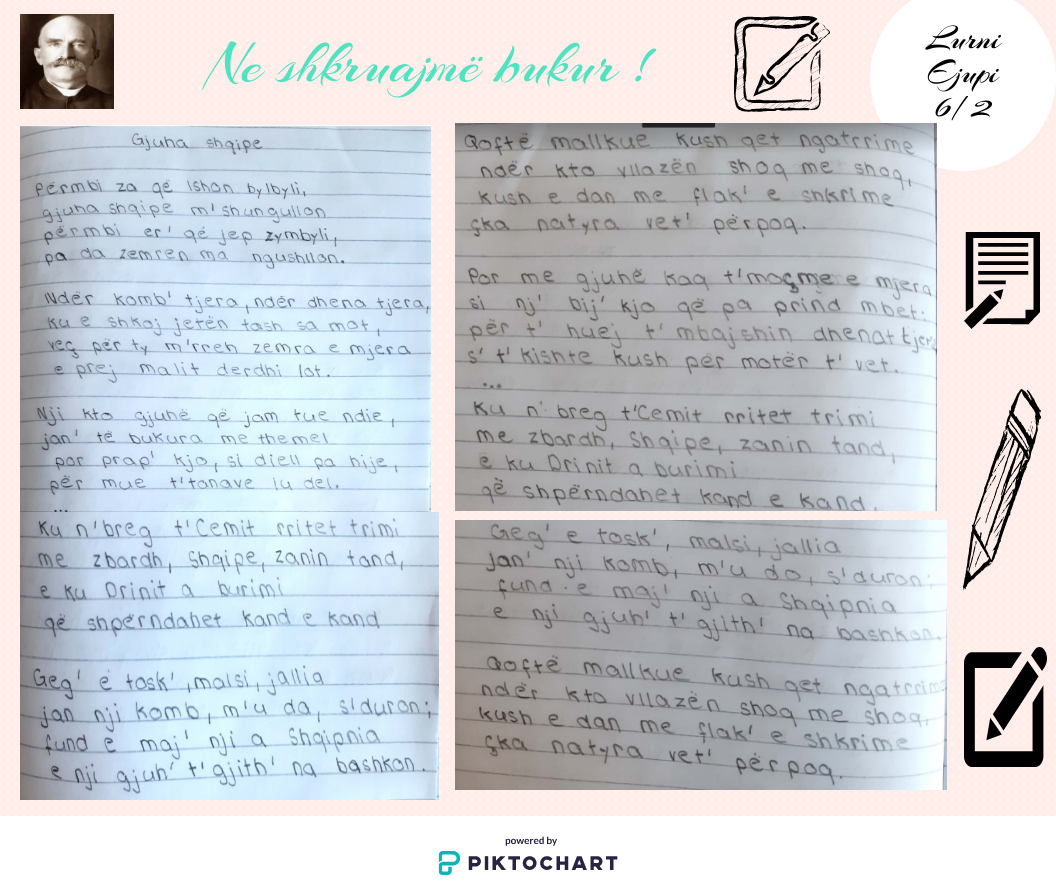 Ne shkruajmë bukur !
Lurni
Ejupi
6/2
Gjuha shqipe
Përmbi za që lshon bylbyli,
gjuha shqipe m'shungullon
përmbi er' që jep zymbyli,
pa da zemren ma ngushllon.
Ndër komb' tjera, ndër dhena tjera,
ku e shkoj jetën tash sa mot,
veç për ty m'rreh zemra e mjera
e prej malit derdhi lot.
Nji kto gjuhë që jam tue ndie,
jan' të bukura me themel
por prap' kjo, si diell pa hije,
për mue t'tanave iu del.
...
Ku n'breg t'Cemit rritet trimi
me zbardh, Shqipe, zanin tand,
e ku Drinit a burimi
që shpërndahet kand e kand
Geg' e tosk', malsi, jallia
jan nji komb, m'u da, s'duron;
fund e maj' nji a Shqipnia
e nji gjuh' t'gjith' na bashkon.
Qoftë mallkue kush qet ngatrrime
ndër kto vllazën shoq me shoq,
kush e dan me flak' e shkrime
çka natyra vet' përpoq.
Por me gjuhë kaq t'moçme e mjera
si nj' bij' kjo që pa prind mbet:
për t' huej t' mbajshin dhenat tjera
s' t'kishte kush për motër t' vet.
...
Ku n' breg t'Cemit rritet trimi
me zbardh, Shqipe, zanin tand,
e ku Drinit a burimi
që shpërndahet kand e kand.
Geg' e tosk', malsi, jallia
jan' nji komb, m'u da, s'duron;
fund e maj' nji a Shqipnia
e nji gjuh' t' gjith' na bashkon.
Qoftë mallkue kush qet ngatrrime
ndër kto vllazën shoq me shoq,
kush e dan me flak' e shkrime
çka natyra vet' përpoq.
powered by
PIKTOCHART